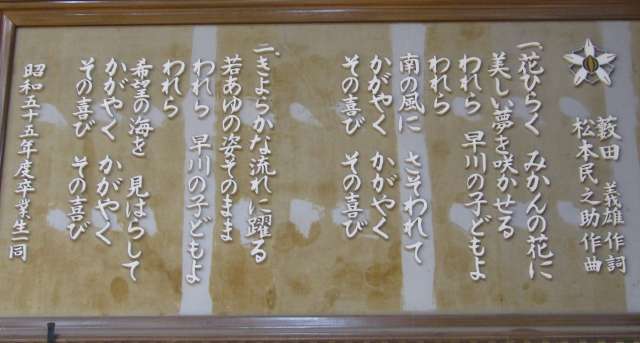 藪田　義雄 作詞
松本民之助 作曲
一、花ひらく　みかんの花に
美しい夢を咲かせる
われら　早川の子どもよ
われら
南の風に　さそわれて
かがやく　かがやく
その喜び　その喜び
二、きよらかな流れに躍る
若あゆの姿そのまま
われら　早川の子どもよ
われら
希望の海を　見はらして
かがやく　かがやく
その喜び　その喜び
昭和五十五年度卒業生一同